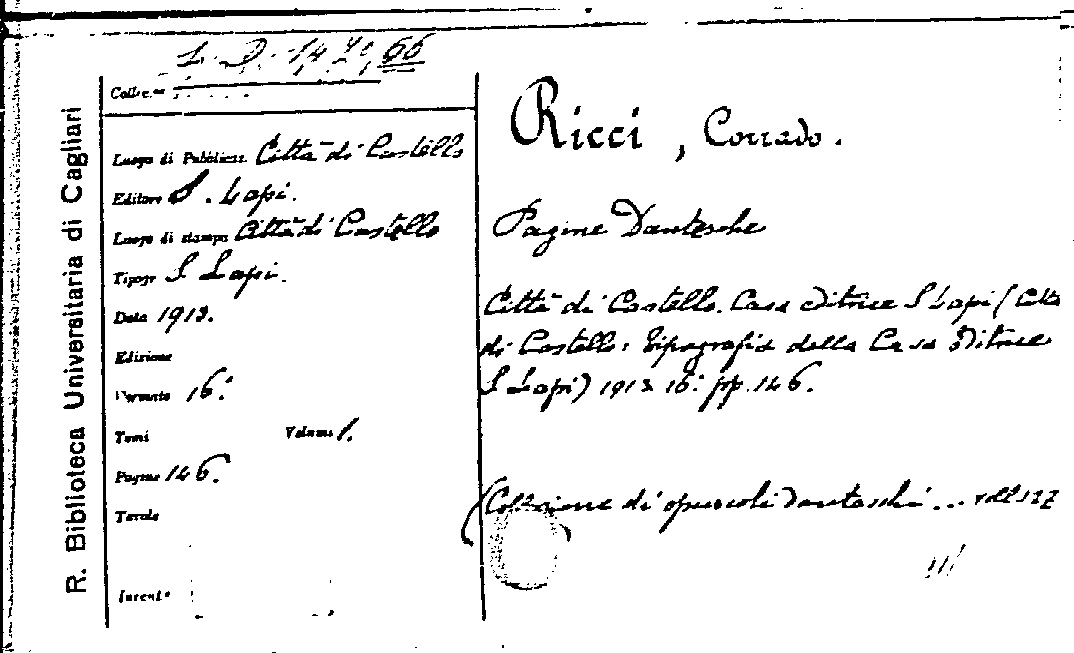 R. Biblioteca Universitaria di Cagliari
66
Colloc.ne
Luogo di Pubblicaz. Città di Castello
Editore S. Lapi.
Luogo di stampa Città di Castello
Tipogr S Lapi.
Data 1913.
Edizione
Formato 16.°
Tomi Volumi 1.
Pagine 146.
Tavole
Invent.°
Ricci, Corrado.
Pagine Dantesche
Città di Castello. Casa editrice S Lapi (Città
di Castello: Tipografia della Casa Editrice
S Lapi) 1913 16.° pp. 146.
(Collezione di opuscoli danteschi ...